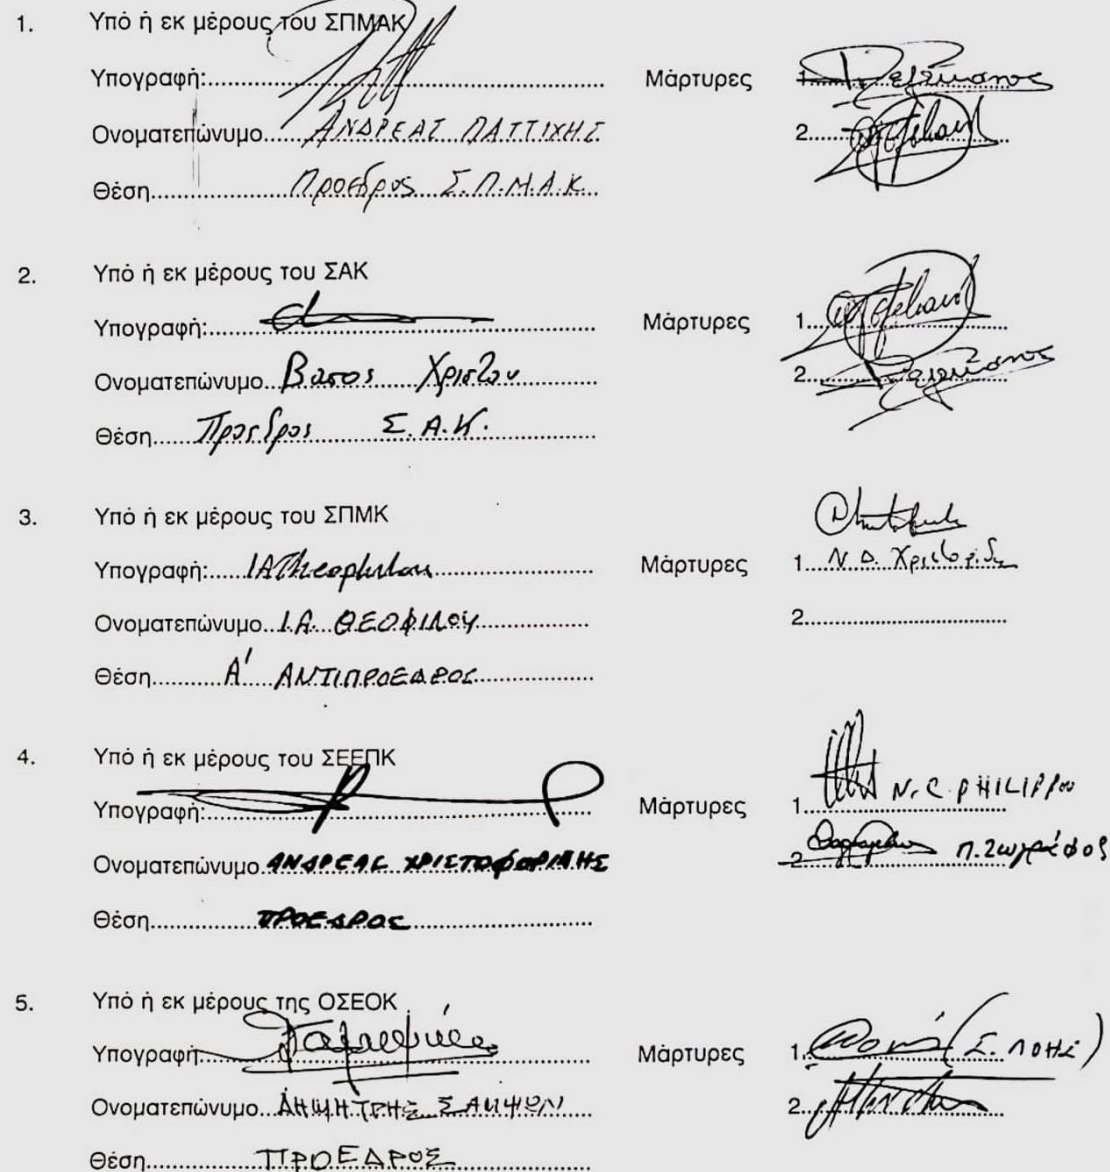 1. Υπό ή εκ μέρους του ΣΠΜΑΚ
Υπογραφή:
Μάρτυρες 1.
Ονοματεπώνυμο ΑΝΔΡΕΑΣ ΠΑΤΤΙΧΗΣ
2.
Θέση Πρόεδρος Σ.Π.Μ.Α.Κ.
2. Υπό ή εκ μέρους του ΣΑΚ
Υπογραφή:
Μάρτυρες 1.
Ονοματεπώνυμο Βάσος Χρίστου
2.
Θέση Πρόεδρος Σ.Α.Κ.
3. Υπό ή εκ μέρους του ΣΠΜΚ
Υπογραφή: IATheophilou
Μάρτυρες 1. Ν.Δ. Χριστοφίδης
Ονοματεπώνυμο Ι.Α. ΘΕΟΦΙΛΟΥ
2.
Θέση Α' ΑΝΤΙΠΡΟΕΔΡΟΣ
4. Υπό ή εκ μέρους του ΣΕΕΠΚ
Υπογραφή:
Μάρτυρες 1. N.C. PHILIPPou
Ονοματεπώνυμο ΑΝΔΡΕΑΣ ΧΡΙΣΤΟΦΟΡΙΔΗΣ
2. Π. Ζωγράφος
Θέση ΠΡΟΕΔΡΟΣ
5. Υπό ή εκ μέρους της ΟΣΕΟΚ
Υπογραφή
Μάρτυρες 1. (Σ. ΛΟΗΣ)
Ονοματεπώνυμο ΔΗΜΗΤΡΗΣ ΣΑΜΨΩΝ
2.
Θέση ΠΡΟΕΔΡΟΣ